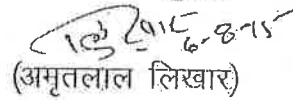 6-8-15
(अमृतलाल लिखार)